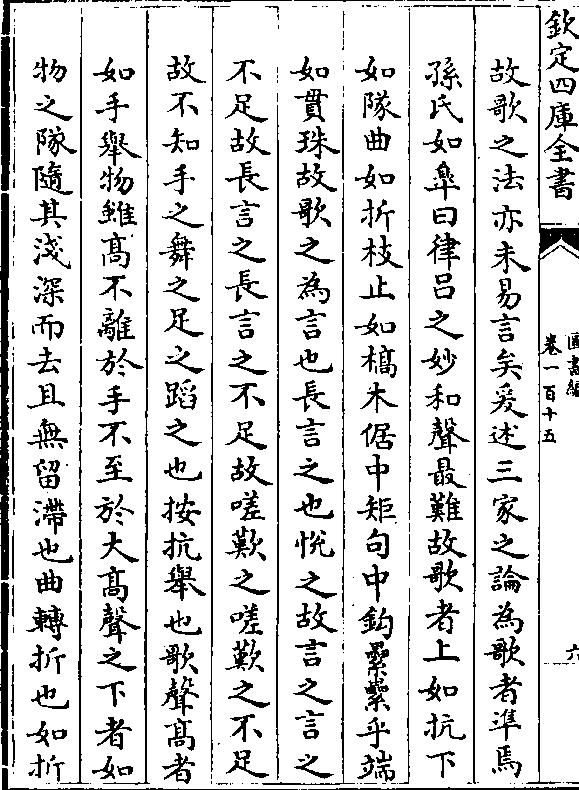 欽定四庫全書
圖書編
卷一百十五
六
故歌之法亦未易言矣爰述三家之論為歌者準焉
孫氏如臯曰律呂之妙和聲最難故歌者上如抗下
如隊曲如折枝止如槁木倨中矩句中鈎纍纍乎端
如貫珠故歌之為言也長言之也悅之故言之言之
不足故長言之長言之不足故嗟歎之嗟歎之不足
故不知手之舞之足之蹈之也按抗舉也歌聲髙者
如手舉物雖髙不離於手不至於大髙聲之下者如
物之隊隨其淺深而去且無留滯也曲轉折也如折